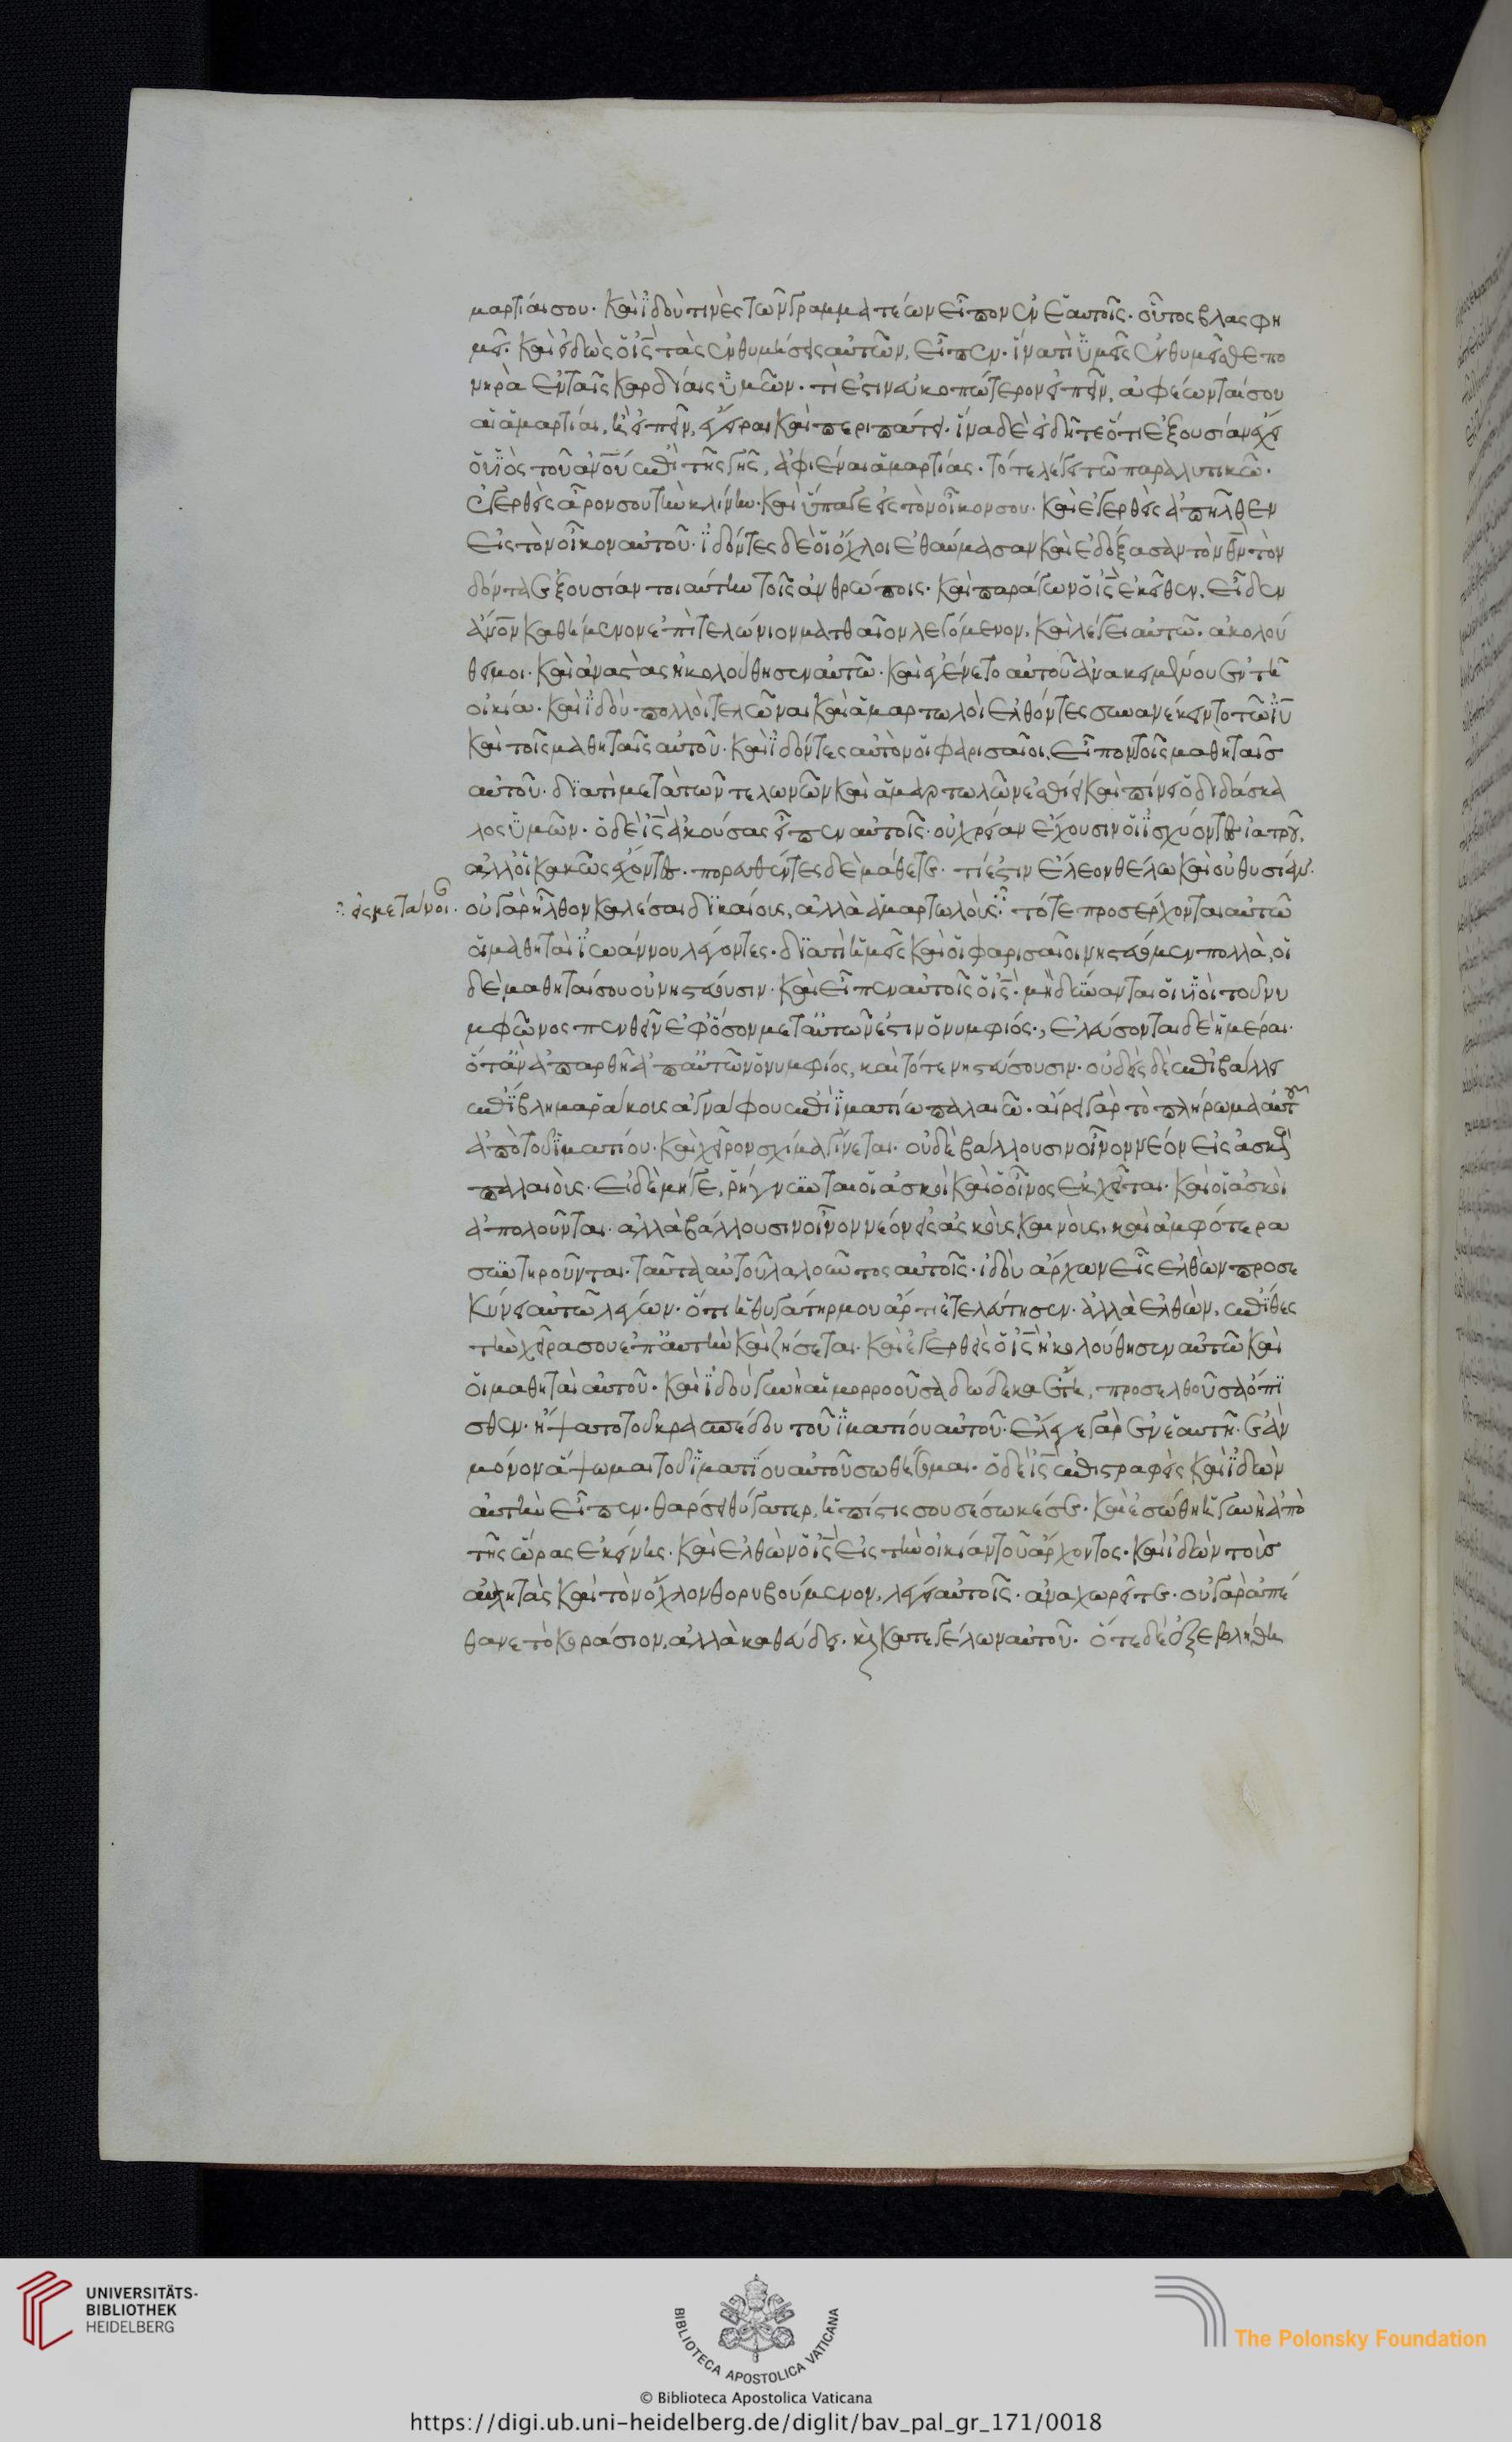 μαρτίαι σου· καὶ ἰδού τινὲς τῶν γραμματέων εἶπον ἐν ἑαυτοῖς· οὗτος βλασφη
μεῖ· καὶ εἰδὼς ὁ ις τὰς ἐνθυμήσεις αὐτῶν, εἶπεν· ἵνα τί ὑμεῖς ἐνθυμεῖσθε πο
νηρὰ ἐν ταῖς καρδίαις ὑμῶν· τί ἐστιν εὐκοπώτερον εἰπεῖν, ἀφέωνταί σου
αἱ ἁμαρτίαι, ἢ εἰπεῖν, ἔγειραι καὶ περιπάτει· ἵνα δὲ εἰδῆτε ὅτι ἐξουσίαν ἔχει
ὁ υἱὸς τοῦ ανου ἐπὶ τῆς γῆς, ἀφιέναι ἁμαρτίας· τότε λέγει τῶ παραλυτικῶ·
ἐγερθεὶς ἆρον σου τὴν κλίνην· καὶ ὕπαγε εἰς τὸν οἶκον σου· καὶ ἐγερθεὶς ἀπῆλθεν
εἰς τὸν οἶκον αὐτοῦ· ἰδόντες δὲ οἱ ὄχλοι ἐθαύμασαν καὶ ἐδόξασαν τὸν θν τὸν
δόντα ἐξουσίαν τοιαύτην τοῖς ἀνθρώποις· καὶ παράγων ὁ ις ἐκεῖθεν, εἶδεν
ανον καθήμενον ἐπὶ τελώνιον ματθαῖον λεγόμενον· καὶ λέγει αὐτῶ· ἀκολού
θει μοι· καὶ ἀναστὰς ἠκολούθησεν αὐτῶ· καὶ ἐγένετο αὐτοῦ ἀνακειμένου ἐν τῆ
οἰκία· καὶ ἰδού πολλοὶ τελῶναι καὶ ἁμαρτωλοὶ ἐλθόντες συνανέκειντο τῶ ιυ
καὶ τοῖς μαθηταῖς αὐτοῦ· καὶ ἰδόντες αὐτὸν οἱ φαρισαῖοι, εἶπον τοῖς μαθηταῖς
αὐτοῦ· διατί μετὰ τῶν τελωνῶν καὶ ἁμαρτωλῶν ἐσθίει καὶ πίνει ὁ διδάσκα
λος ὑμῶν· ὁ δὲ ις ἀκούσας εἶπεν αὐτοῖς· οὐ χρείαν ἔχουσιν οἱ ἰσχύοντες ἰατροῦ,
ἀλλ' οἱ κακῶς ἔχοντες· πορευθέντες δὲ μάθετε τί ἐστιν ἔλεον θέλω καὶ οὐ θυσίαν·
∴ εἰς μετάνοι· οὐ γὰρ ἦλθον καλέσαι δικαίους, ἀλλὰ ἁμαρτωλούς ∴ τότε προσέρχονται αὐτῶ
οἱ μαθηταὶ ἰωάννου λέγοντες· διατί ἡμεῖς καὶ οἱ φαρισαῖοι νηστεύομεν πολλὰ, οἱ
δὲ μαθηταί σου οὐ νηστεύουσιν· καὶ εἶπεν αὐτοῖς ὁ ις· μὴ δύνανται οἱ υἱοὶ τοῦ νυ
μφῶνος πενθεῖν ἐφ' ὅσον μετ' αὐτῶν ἐστιν ὁ νυμφιός·, ἐλεύσονται δὲ ἡμέραι·
ὅταν ἀπαρθῆ ἀπ' αὐτῶν ὁ νυμφίος, καὶ τότε νηστεύσουσιν· οὐδεὶς δὲ ἐπιβάλλει
ἐπίβλημα ῥάκους ἀγνάφου ἐπὶ ἱματίω παλαιῶ· αἴρει γὰρ τὸ πλήρωμα αὐτοῦ
ἀπὸ τοῦ ἱματίου· καὶ χεῖρον σχίσμα γίνεται· οὐδὲ βάλλουσιν οἶνον νέον εἰς ἀσκοὺς
παλαιούς· εἰ δὲ μήγε, ῥήγνυνται οἱ ἀσκοὶ καὶ ὁ οἶνος ἐκχεῖται· καὶ οἱ ἀσκοὶ
ἀπολοῦνται· ἀλλὰ βάλλουσιν οἶνον νέον εἰς ἀσκοὺς καινοὺς, καὶ ἀμφότερα
συντηροῦνται· ταῦτα αὐτοῦ λαλοῦντος αὐτοῖς· ἰδοὺ ἄρχων εἷς ἐλθὼν προσε
κύνει αὐτῶ λέγων· ὅτι ἡ θυγάτηρ μου ἄρτι ἐτελεύτησεν· ἀλλὰ ἐλθὼν, ἐπίθες
τὴν χεῖρα σου ἐπ' αὐτὴν καὶ ζήσεται· καὶ ἐγερθεὶς ὁ ις ἠκολούθησεν αὐτῶ καὶ
οἱ μαθηταὶ αὐτοῦ· καὶ ἰδοὺ γυνὴ αἱμορροοῦσα δώδεκα ἔτη, προσελθοῦσα ὄπι
σθεν· ἥψατο τοῦ κρασπέδου τοῦ ἱματίου αὐτοῦ· ἔλεγε γὰρ ἐν ἑαυτῆ· ἐὰν
μόνον ἅψωμαι τοῦ ἱματίου αὐτοῦ σωθήσομαι· ὁ δὲ ις ἐπιστραφεὶς καὶ ἰδὼν
αὐτὴν εἶπεν· θάρσει θύγατερ, ἡ πίστις σου σέσωκέ σε· καὶ ἐσώθη ἡ γυνὴ ἀπὸ
τῆς ὥρας ἐκείνης· καὶ ἐλθὼν ὁ ις εἰς τὴν οἰκίαν τοῦ ἄρχοντος· καὶ ἰδὼν τοὺς
αὐλητὰς καὶ τὸν ὄχλον θορυβούμενον, λέγει αὐτοῖς· ἀναχωρεῖτε· οὐ γὰρ ἀπέ
θανε τὸ κοράσιον, ἀλλὰ καθεύδει· κὶ κατεγέλων αὐτοῦ· ὅτε δὲ ἐξεβλήθη
UNIVERSITÄTS-
BIBLIOTHEK
HEIDELBERG
BIBLIOTECA APOSTOLICA VATICANA
The Polonsky Foundation
© Biblioteca Apostolica Vaticana
https://digi.ub.uni-heidelberg.de/diglit/bav_pal_gr_171/0018